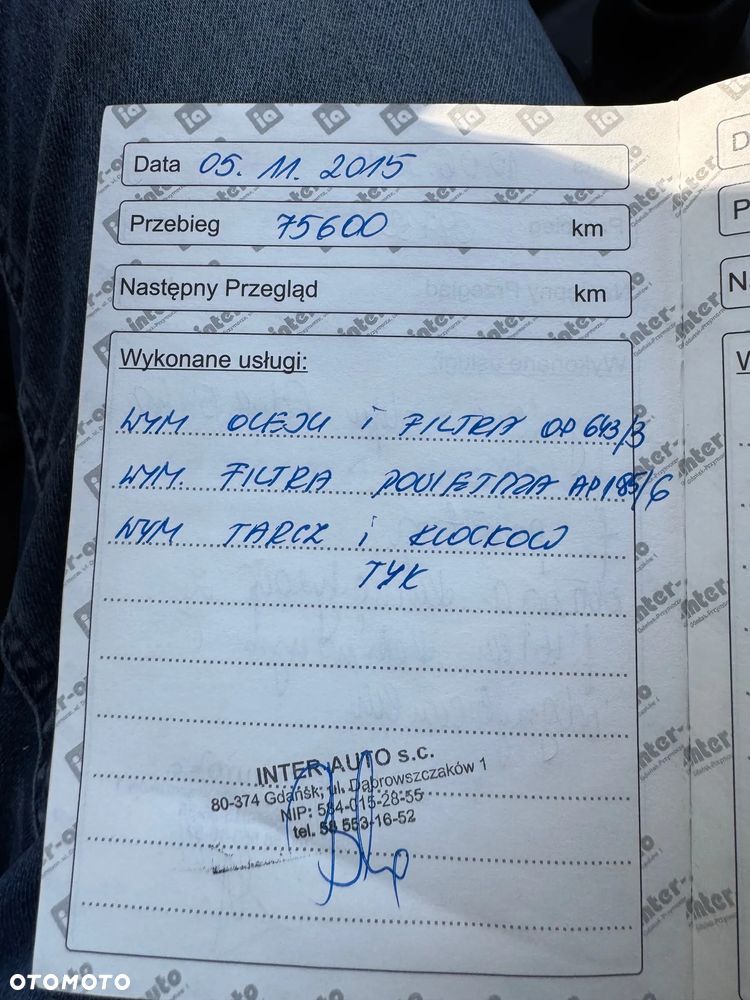 Data 05. 11. 2015
Przebieg 75600 km
Następny Przegląd km
Wykonane usługi:
WYM OLEJU i FILTRA OP 643/3
WYM. FILTRA POWIETRZA AP185/6
WYM TARCZ i KLOCKOW
TYŁ
INTER AUTO s.c.
80-374 Gdańsk, ul. Dąbrowszczaków 1
NIP: 584-015-28-55
tel. 58 553-16-52
OTOMOTO